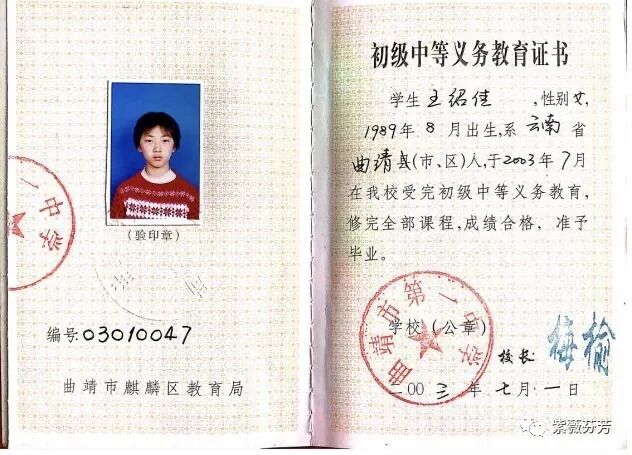 (验印章)
一中学
编号:03010047
曲靖市麒麟区教育局
初级中等义务教育证书
学生 王绍佳 ,性别 女,
1989年 8 月出生,系 云南 省
曲靖县(市、区)人,于2003年7月
在我校受完初级中等义务教育,
修完全部课程,成绩合格,准予
毕业。
曲靖市第一中学
学校(公章)
校长: 梅榆
二00三年七月一日
紫薇芬芳